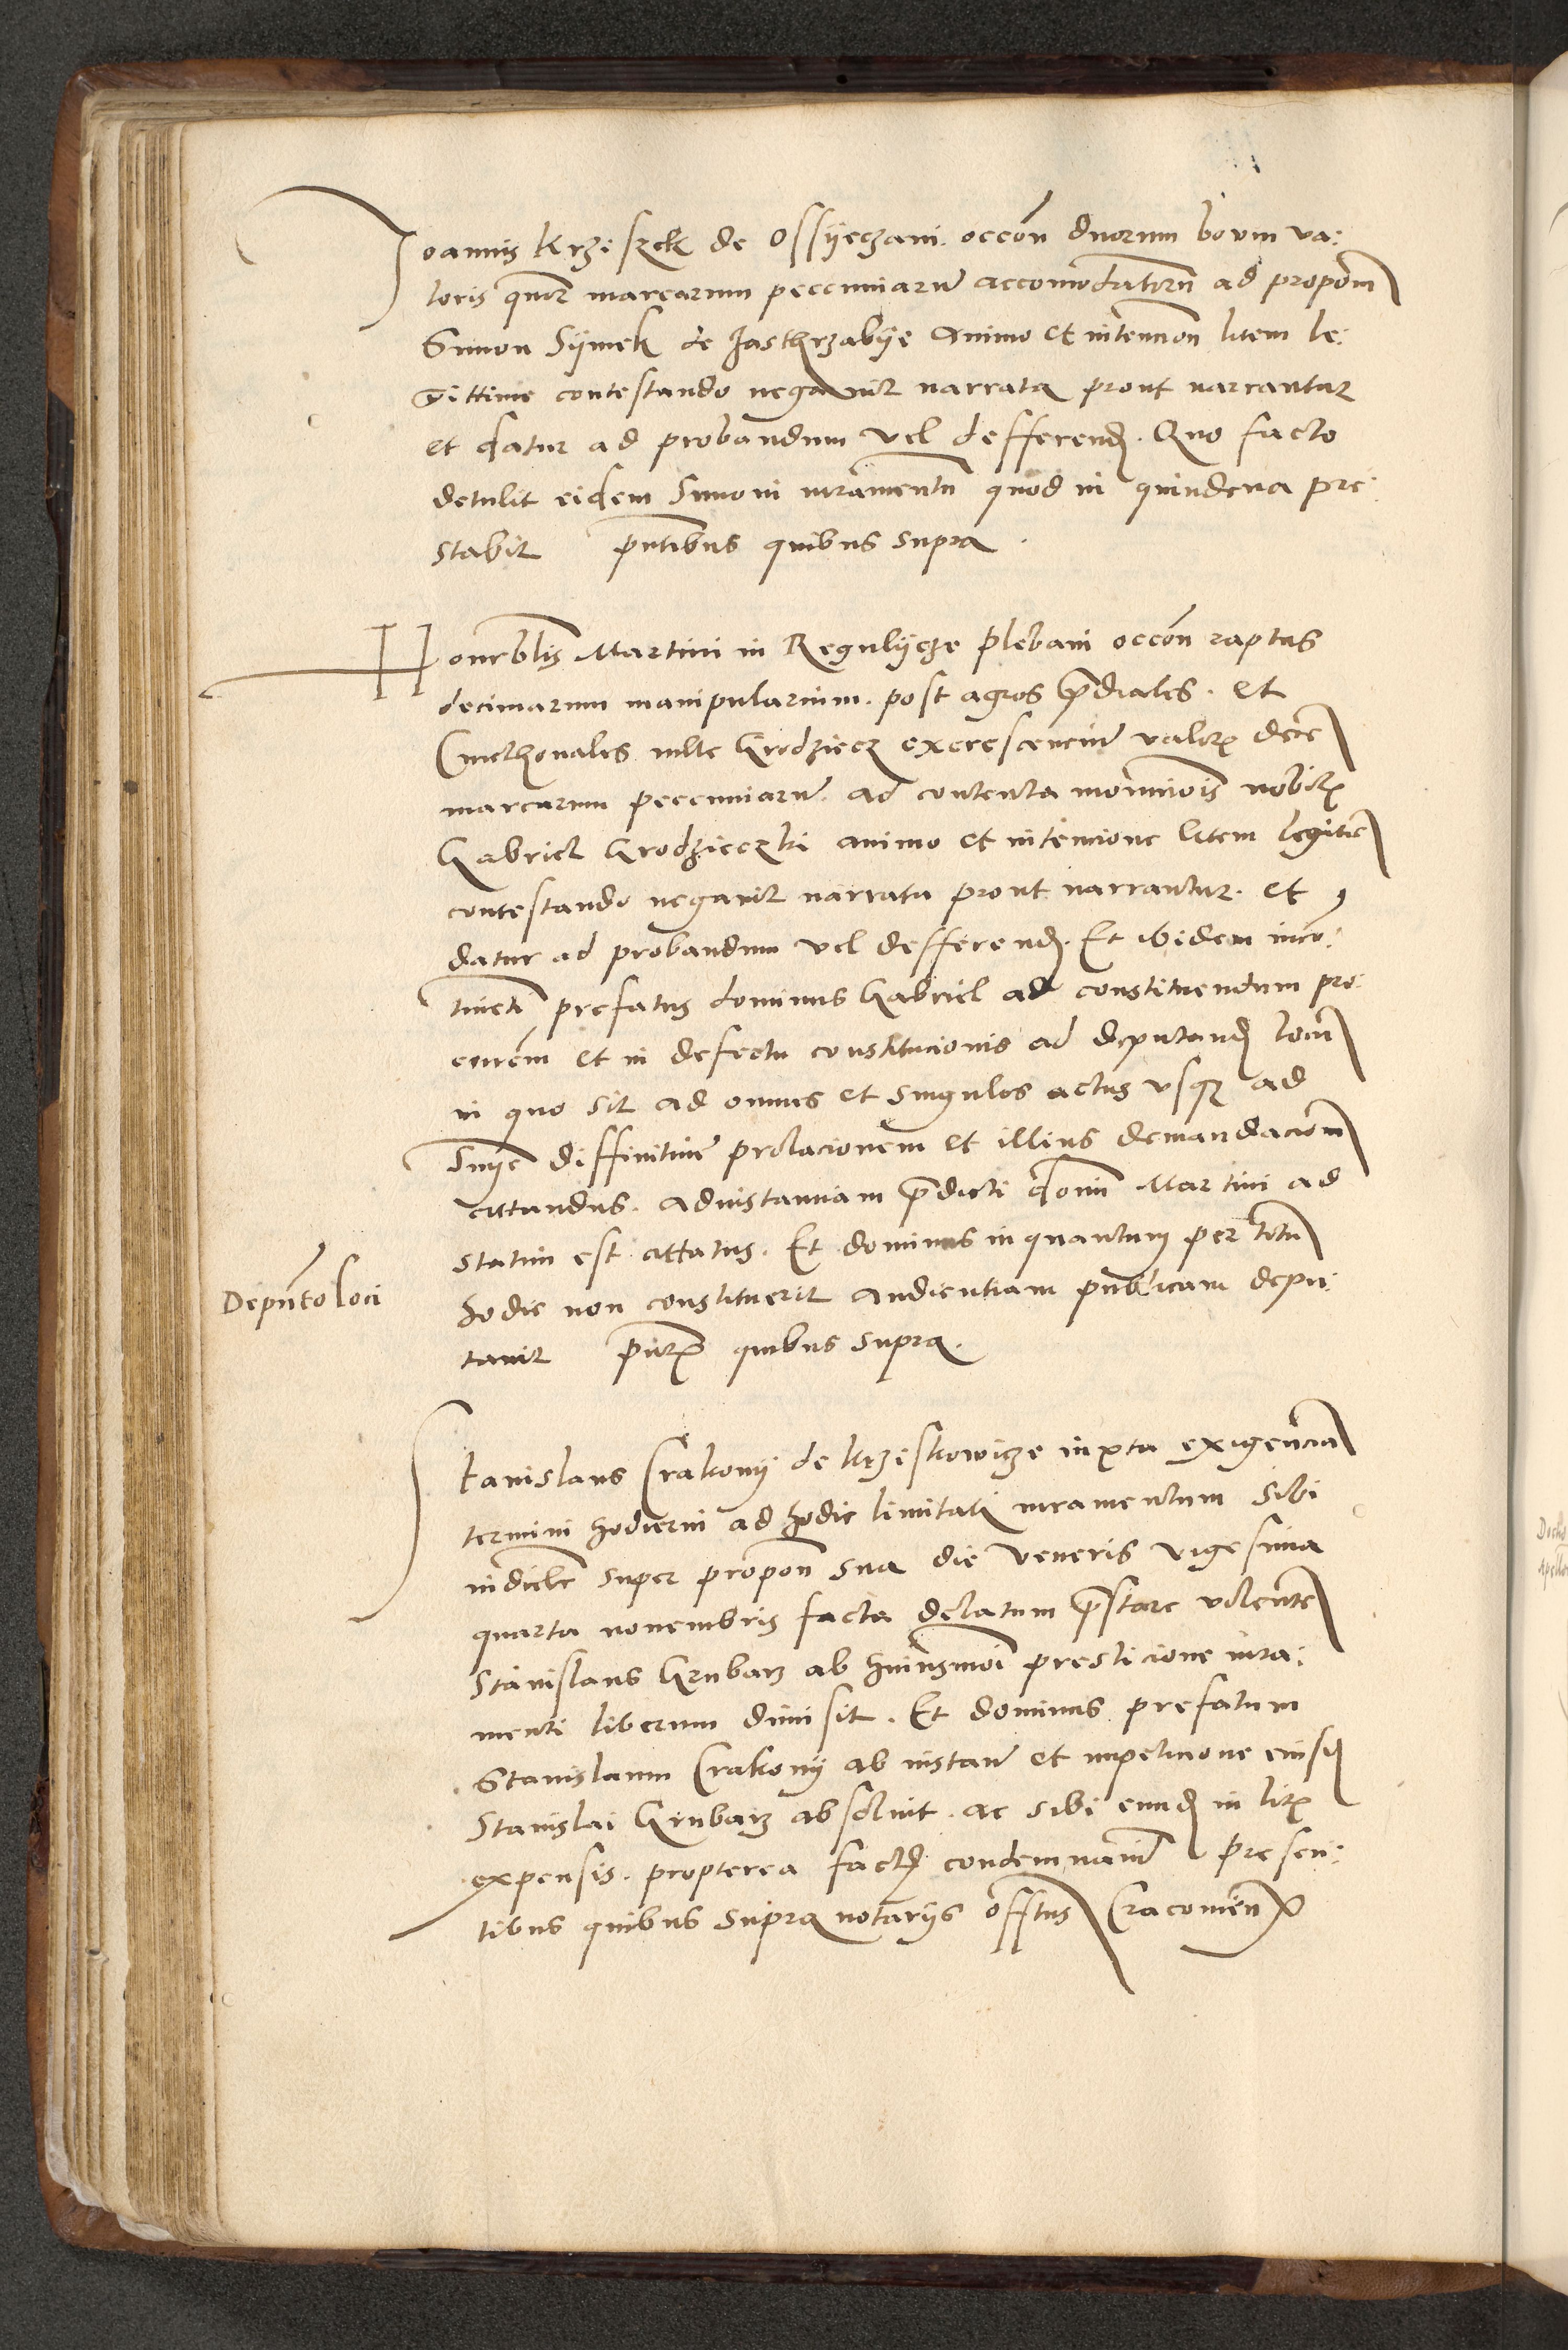 Joannis Krzeszek de Ossyeczani. occon duorum bovm va:
loris quor marcarum peccuniaru accomodatoru ad propom
Simon Symek de Jasthrzabye animo et intencion litem le:
gittime contestando negavit narrata prout narrantur
et datur ad probandum vel defferend. Quo facto
detulit eidem Simoni iuramentu quod in quindena pre:
stabit pntibus quibus supra.
Honrblis Martini in Regulycze plebani occon raptus
decimarum manipularium. post agros prdiales. et
Cmethonales ville Grodziecz excrescenciu valor dece
marcarum peccuniaru. ad contenta monicionis nobil
Gabriel Grodzieczki animo et intencione litem legitie
contestando negavit narrata prout narrantur. et
datur ad probandum vel defferend. Et ibidem inco:
tinenti prefatus dominus Gabriel ad constituendum pro:
curem et in defectu constitucionis ad deputand locu
in quo sit ad omnes et singulos actus vsque ad
Snie diffinitiue prolacionem et illius demandaciom
cittandus. ad instantiam prdicti domi Martini ad
statim est cittatus. Et dominus in quantum per totu
Deputo loci
hodie non constituerit audientiam publicam depu:
tavit pntib quibus supra.
Stanislaus Crakowy de Krzeskowicze iuxta exigencia
termini hodierni ad hodie limitati iuramentum sibi
indicte super propon sua die veneris vigesima
quarta novembris facta delatum prstare volente
Stanislaus Grubarz ab huiusmoi presticione iura:
menti liberum dimisit. Et dominus prefatum
Stanislaum Crakowy ab instan et impeticione eiusd
Stanislai Grubarz absoluit. ac sibi eund in lit
expensis. propterea fact condemnavit presen:
tibus quibus supra notariis offtus Cracovien